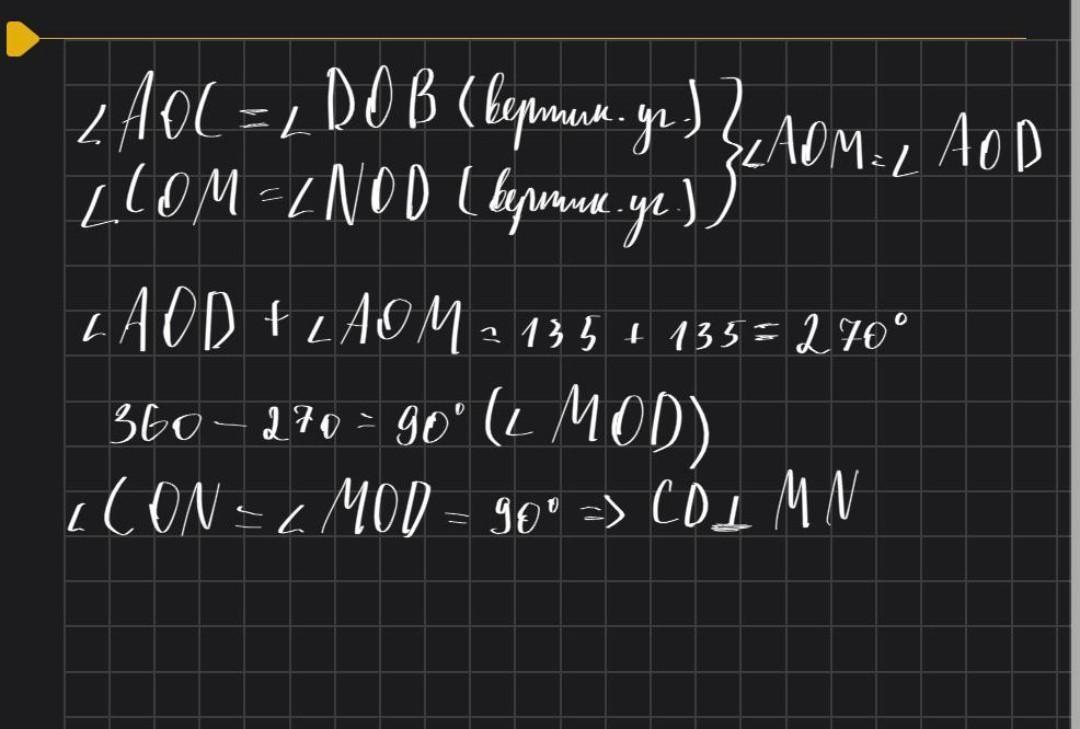 ∠AOC = ∠DOB (вертик. уг.) } ∠AOM = ∠AOD
∠COM = ∠NOD (вертик. уг.)
∠AOD + ∠AOM = 135 + 135 = 270°
360 - 270 = 90° (∠MOD)
∠CON = ∠MOD = 90° => CD ⊥ MN